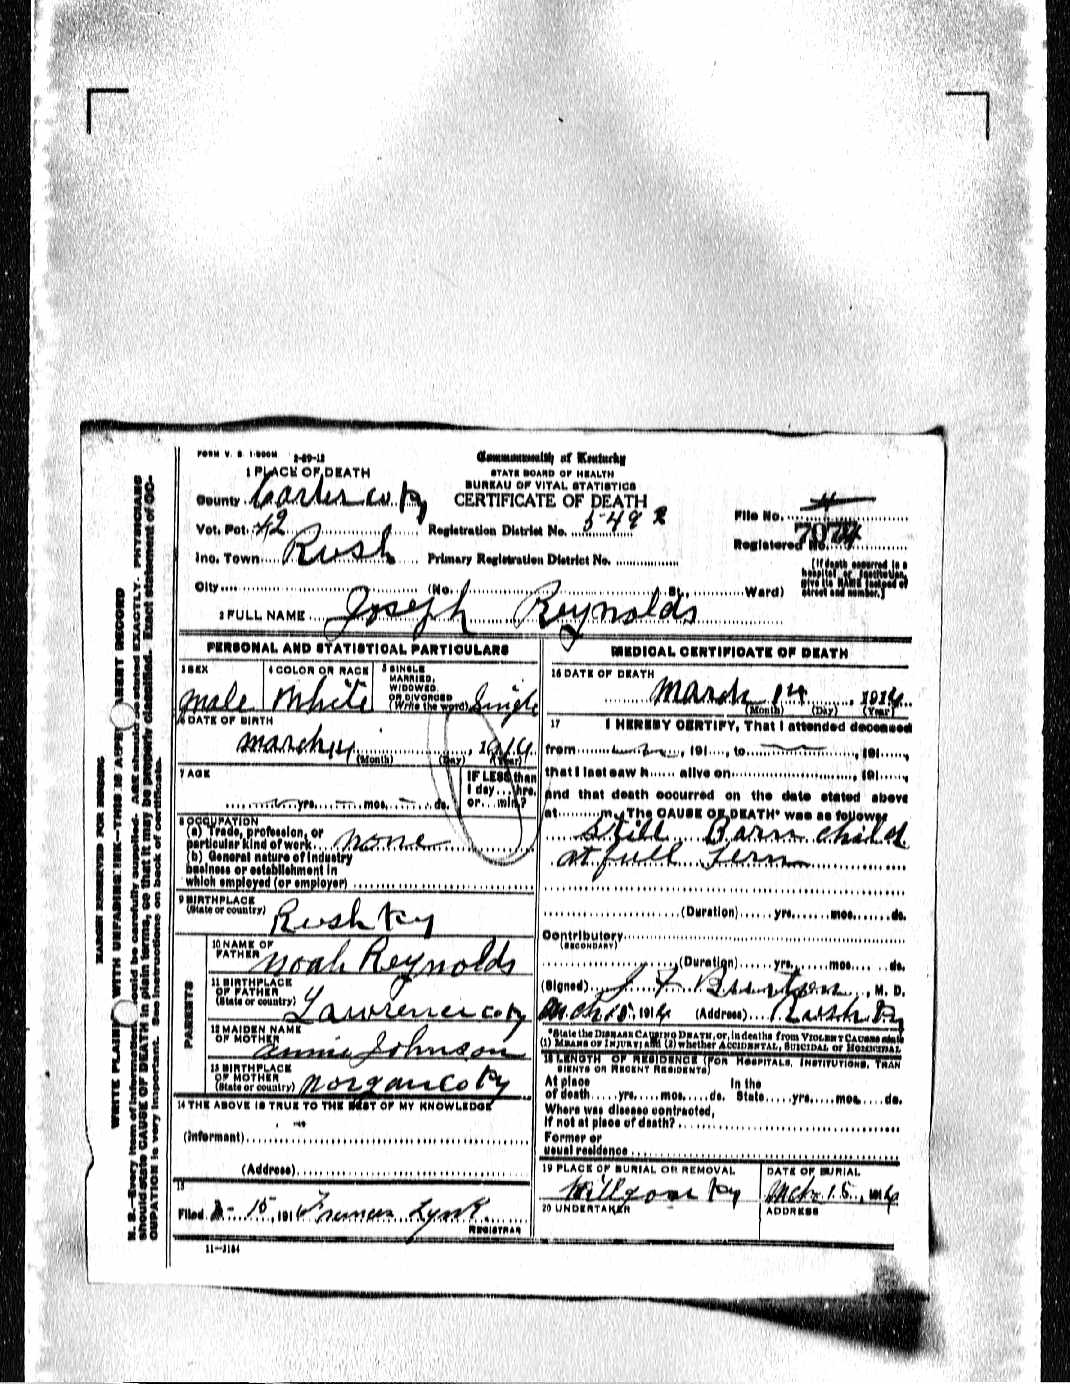 FORM V. S. 1-500M 3-29-12
Commonwealth of Kentucky
STATE BOARD OF HEALTH
BUREAU OF VITAL STATISTICS
CERTIFICATE OF DEATH
1 PLACE OF DEATH
County Carter co. Ky
Vot. Pct. 42
Registration District No. 549
File No.
Registered No.
Inc. Town Rush
Primary Registration District No.
City (No. St. Ward)
[If death occurred in a hospital or institution, give its NAME instead of street and number.]
2 FULL NAME Joseph Reynolds
PERSONAL AND STATISTICAL PARTICULARS
3 SEX
male
4 COLOR OR RACE
White
5 SINGLE, MARRIED, WIDOWED, OR DIVORCED (Write the word) Single
6 DATE OF BIRTH
march 14, 1914
(Month) (Day) (Year)
7 AGE
yrs. mos. ds.
IF LESS than 1 day hrs. or min.?
8 OCCUPATION
(a) Trade, profession, or particular kind of work none
(b) General nature of industry
business or establishment in
which employed (or employer)
9 BIRTHPLACE
(State or country) Rush Ky
PARENTS
10 NAME OF FATHER Noah Reynolds
11 BIRTHPLACE OF FATHER (State or country) Lawrence co Ky
12 MAIDEN NAME OF MOTHER Annie Johnson
13 BIRTHPLACE OF MOTHER (State or country) Morgan Co Ky
14 THE ABOVE IS TRUE TO THE BEST OF MY KNOWLEDGE
(Informant)
(Address)
15
Filed 15, 191 Lynk
REGISTRAR
11-3184
MEDICAL CERTIFICATE OF DEATH
16 DATE OF DEATH
March 14, 1914
(Month) (Day) (Year)
17 I HEREBY CERTIFY, That I attended deceased
from , 191 , to , 191 ,
that I last saw h alive on , 191 ,
and that death occurred on the date stated above
at m. The CAUSE OF DEATH* was as follows
Still Born child
at full Term
(Duration) yrs. mos. ds.
Contributory
(SECONDARY)
(Duration) yrs. mos. ds.
(Signed) J F , M. D.
Mch 15, 1914 (Address) Rush Ky
*State the DISEASE CAUSING DEATH, or, in deaths from VIOLENT CAUSES state
(1) MEANS OF INJURY; and (2) whether ACCIDENTAL, SUICIDAL or HOMICIDAL
18 LENGTH OF RESIDENCE (FOR HOSPITALS, INSTITUTIONS, TRANSIENTS OR RECENT RESIDENTS)
At place of death yrs. mos. ds. In the State yrs. mos. ds.
Where was disease contracted,
if not at place of death?
Former or
usual residence
19 PLACE OF BURIAL OR REMOVAL
Ky
DATE OF BURIAL
Mch 15, 1914
20 UNDERTAKER
ADDRESS
MARGIN RESERVED FOR BINDING
WRITE PLAIN WITH UNFADING INK—THIS IS A PERMANENT RECORD
N. B.—Every item of information should be carefully supplied. AGE should be stated EXACTLY. PHYSICIANS
should state CAUSE OF DEATH in plain terms, so that it may be properly classified. Exact statement of OC-
CUPATION is very important. See instructions on back of certificate.